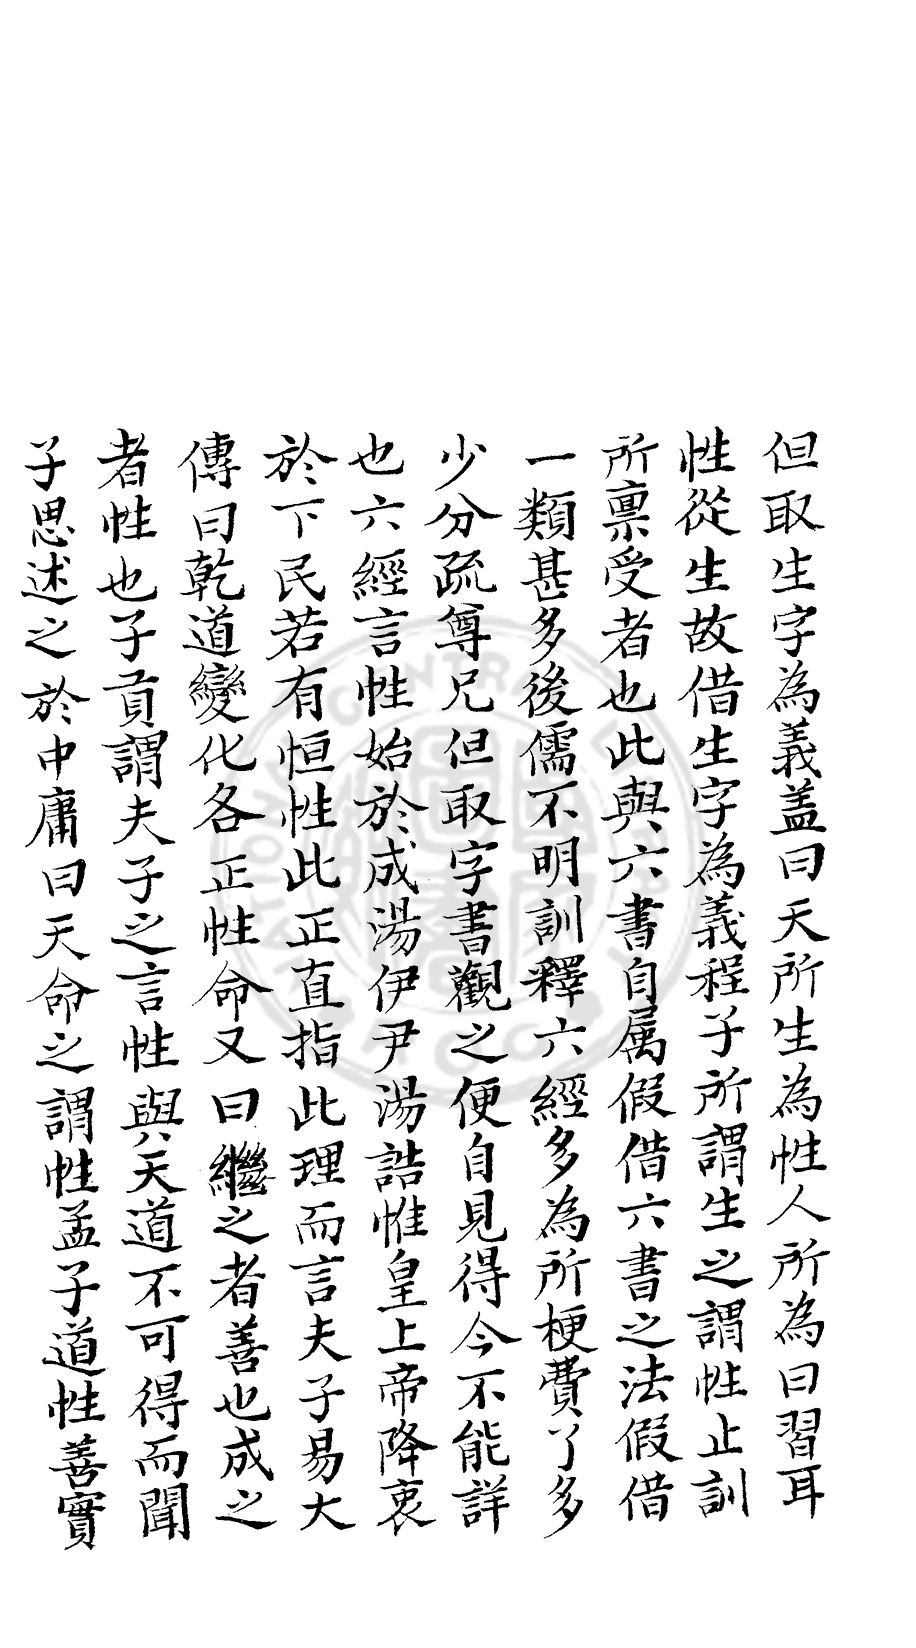 但取生字為義蓋曰天所生為性人所為曰習耳
性從生故借生字為義程子所謂生之謂性止訓
所禀受者也此與六書自属假借六書之法假借
一類甚多後儒不明訓釋六經多為所梗費了多
少分疏尊兄但取字書觀之便自見得今不能詳
也六經言性始於成湯伊尹湯誥惟皇上帝降衷
於下民若有恒性此正直指此理而言夫子易大
傳曰乾道變化各正性命又曰繼之者善也成之
者性也子貢謂夫子之言性與天道不可得而聞
子思述之於中庸曰天命之謂性孟子道性善實